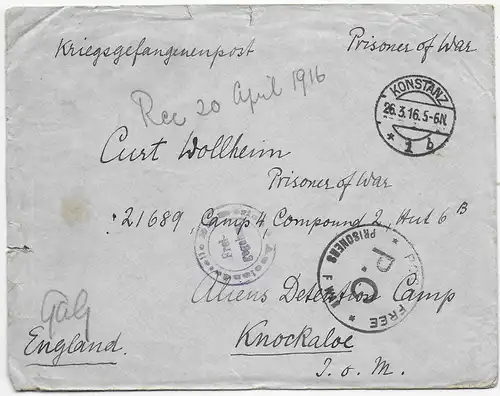 Kriegsgefangenenpost
Prisoner of War
Rec 20 April 1916
KONSTANZ
26.3.16.5-6N.
* 1 b
Curt Wollheim
Prisoner of War
:21689, Camp 4, Compound 2, Hut 6 B
POST FREE
P.C
PRISONERS OF WAR
Aliens Detention Camp
Knockaloe
I.o.M.
England.